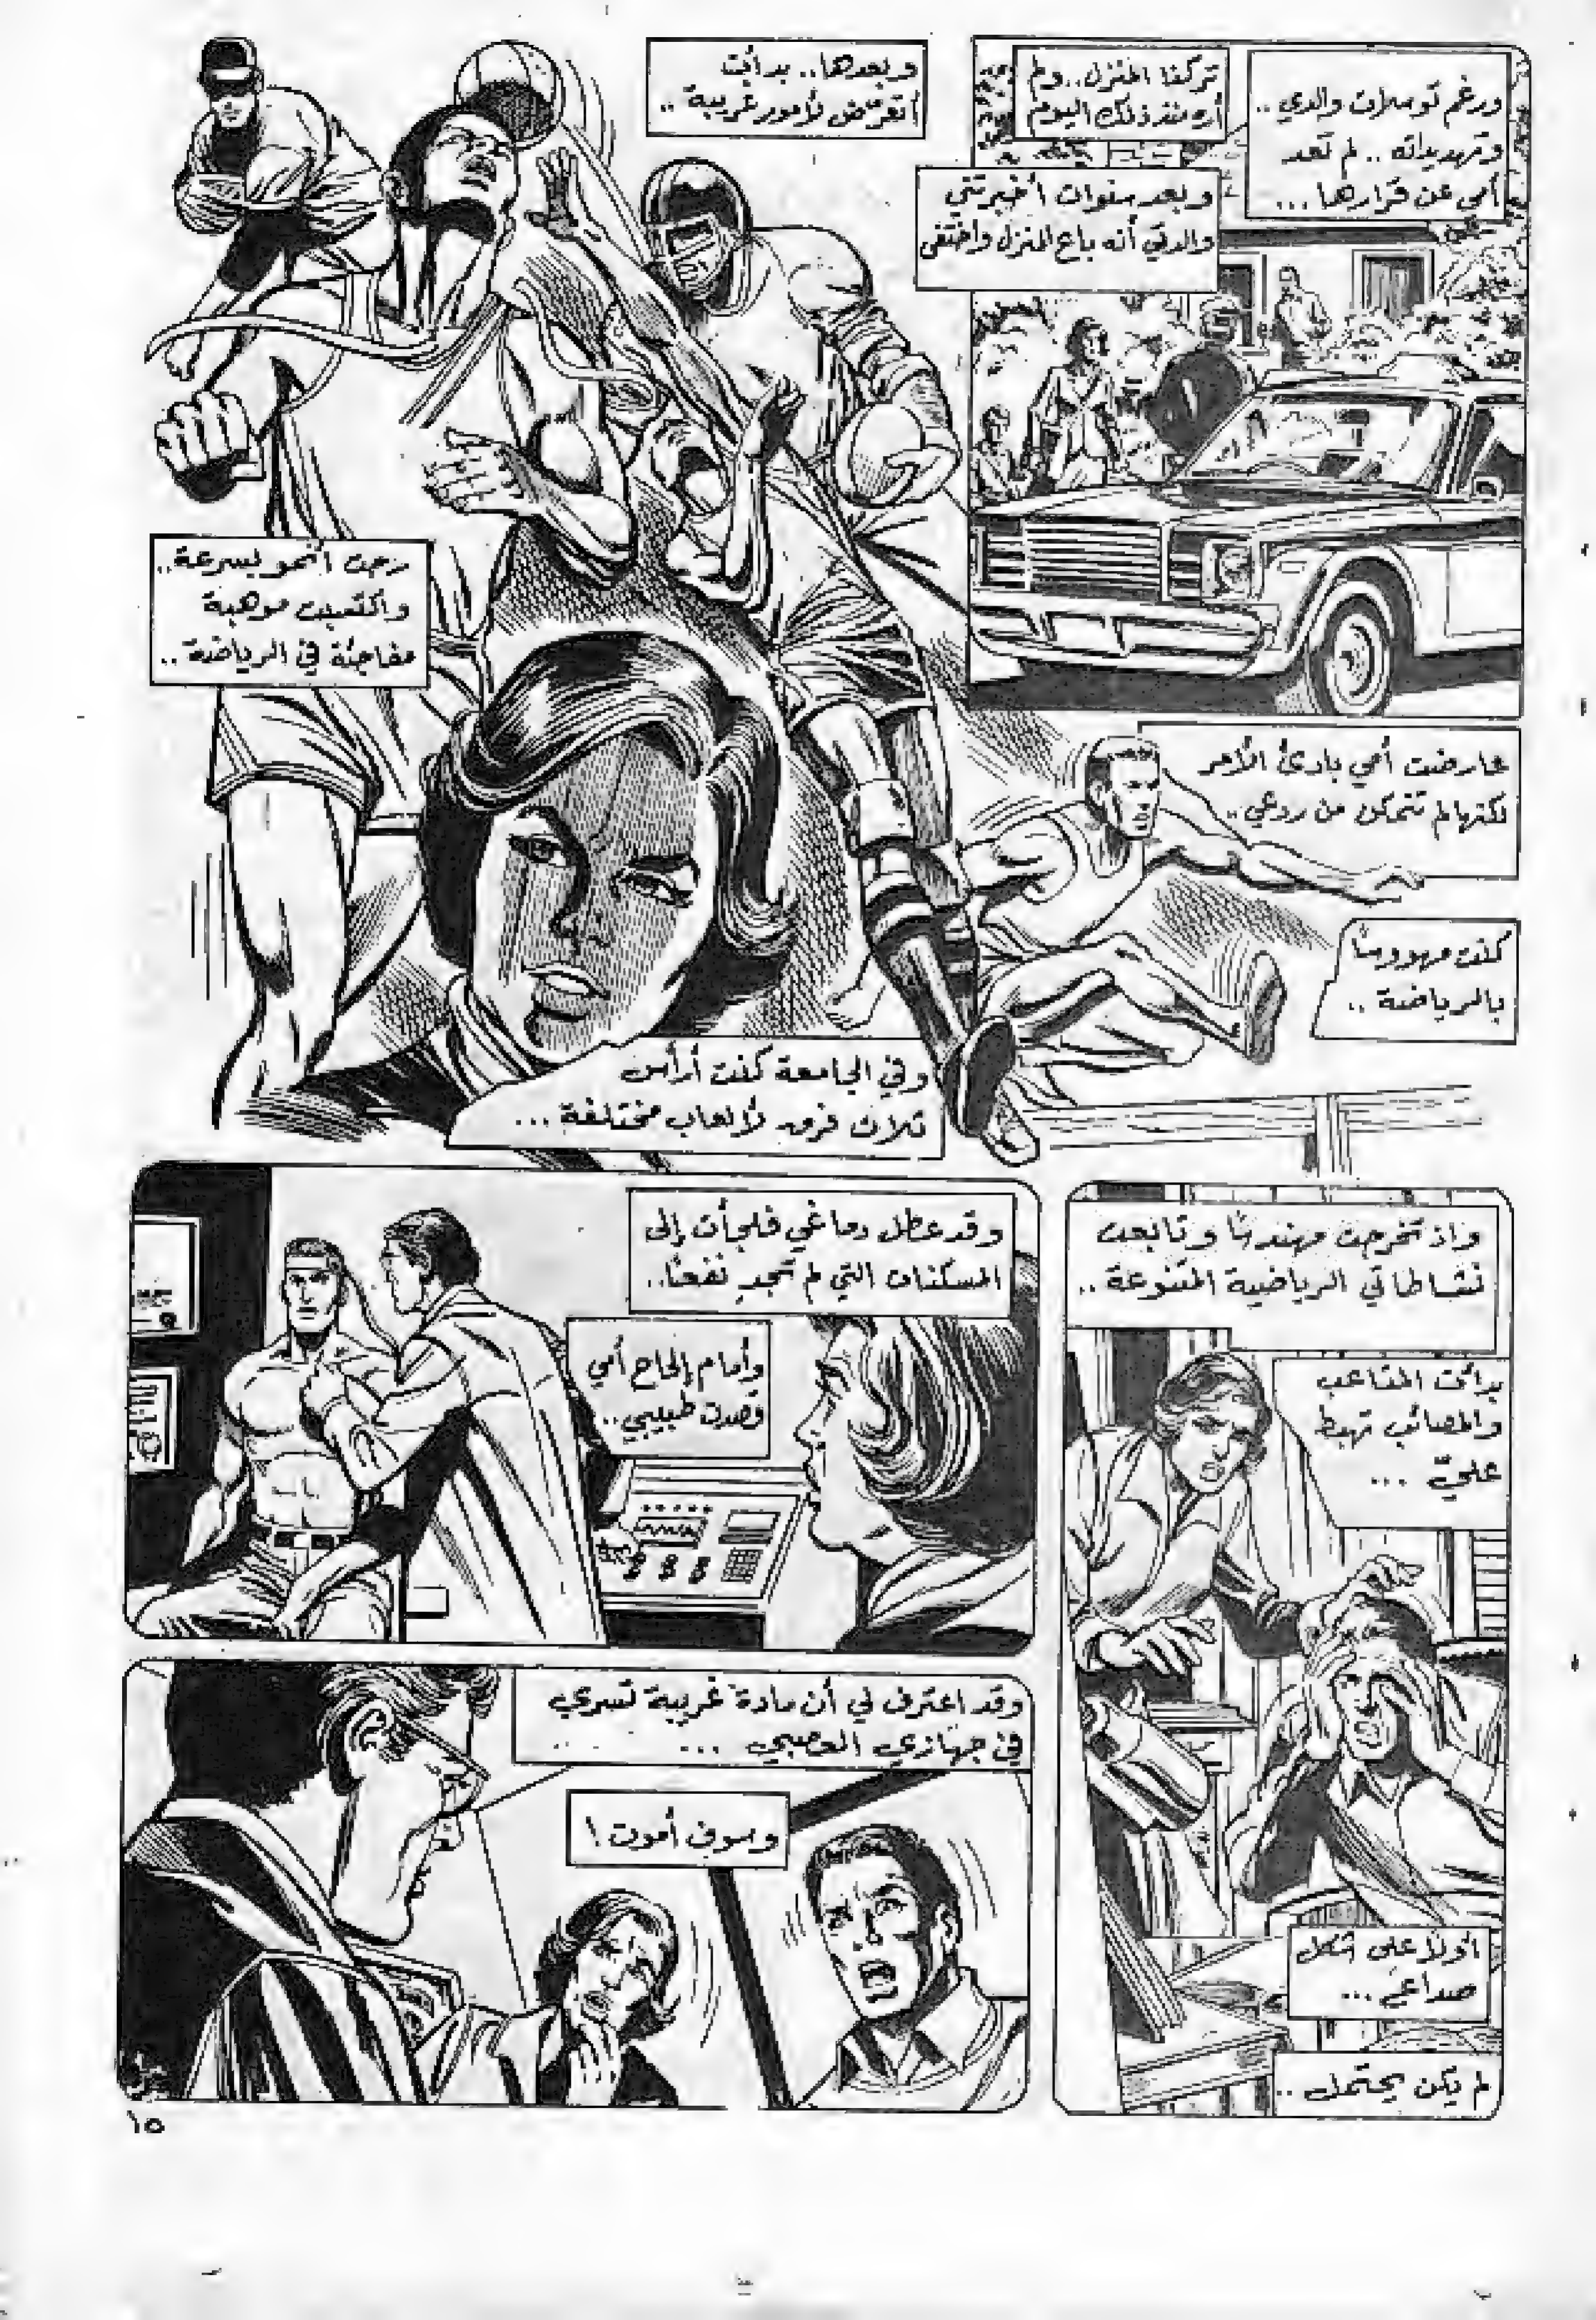 ورغم توسلات والدي..
وتهديداته.. لم تعد
أمي عن قرارها...
تركنا المنزل.. ولم
أره منذ ذلك اليوم
وبعد سنوات أخبرتني
والدتي أنه باع المنزل واختفى
وبعدها.. بدأت
أتعرض لأمور غريبة..
رحت أنمو بسرعة..
واكتسبت موهبة
مفاجئة في الرياضة..
عارضت أمي بادئ الأمر
لكنها لم تتمكن من ردعي..
كنت مهووسًا
بالرياضة..
وفي الجامعة كنت أرأس
ثلاث فرق لألعاب مختلفة...
وإذ تخرجت مهندسًا وتابعت
نشاطاتي الرياضية المتنوعة..
بدأت المتاعب
والمصائب تهبط
عليّ...
أولًا على شكل
صداع...
لم يكن يحتمل..
وقد عطل دماغي فلجأت إلى
المسكنات التي لم تجدِ نفعًا..
وأمام إلحاح أمي
قصدت طبيبي..
وقد اعترف لي أن مادة غريبة تسري
في جهازي العصبي...
وسوف أموت!
١٥